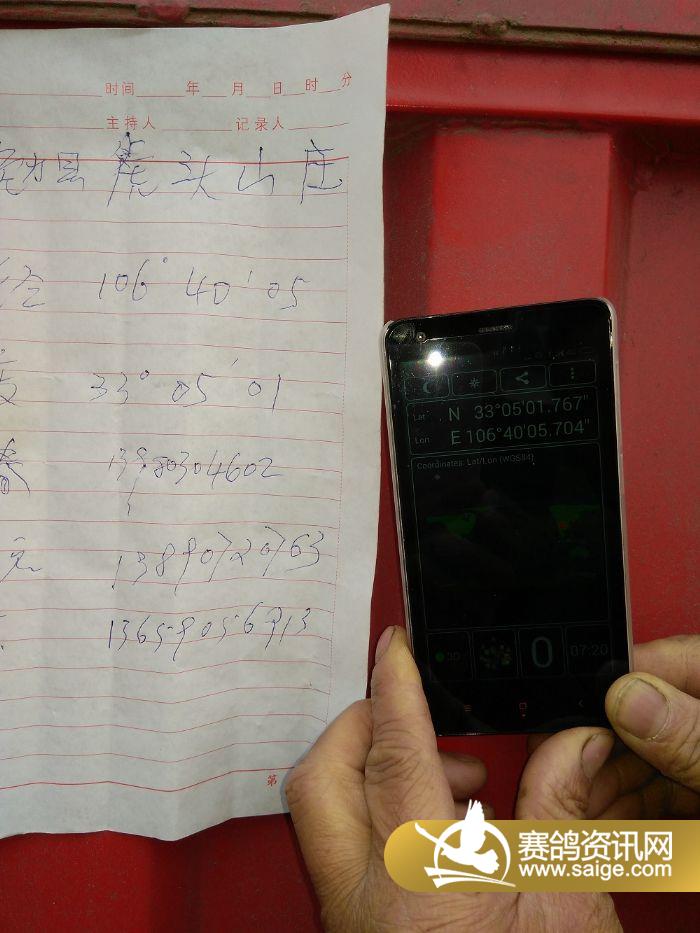 时间 年 月 日 时 分
主持人 记录人
县 虎头山庄
106° 40′ 05
33° 05′ 01
13980304602
13890720763
13659056913
第
Lat N 33°05'01.767"
Lon E 106°40'05.704"
Coordinates: Lat/Lon (WGS84)
0
07:20
赛鸽资讯网
www.saige.com